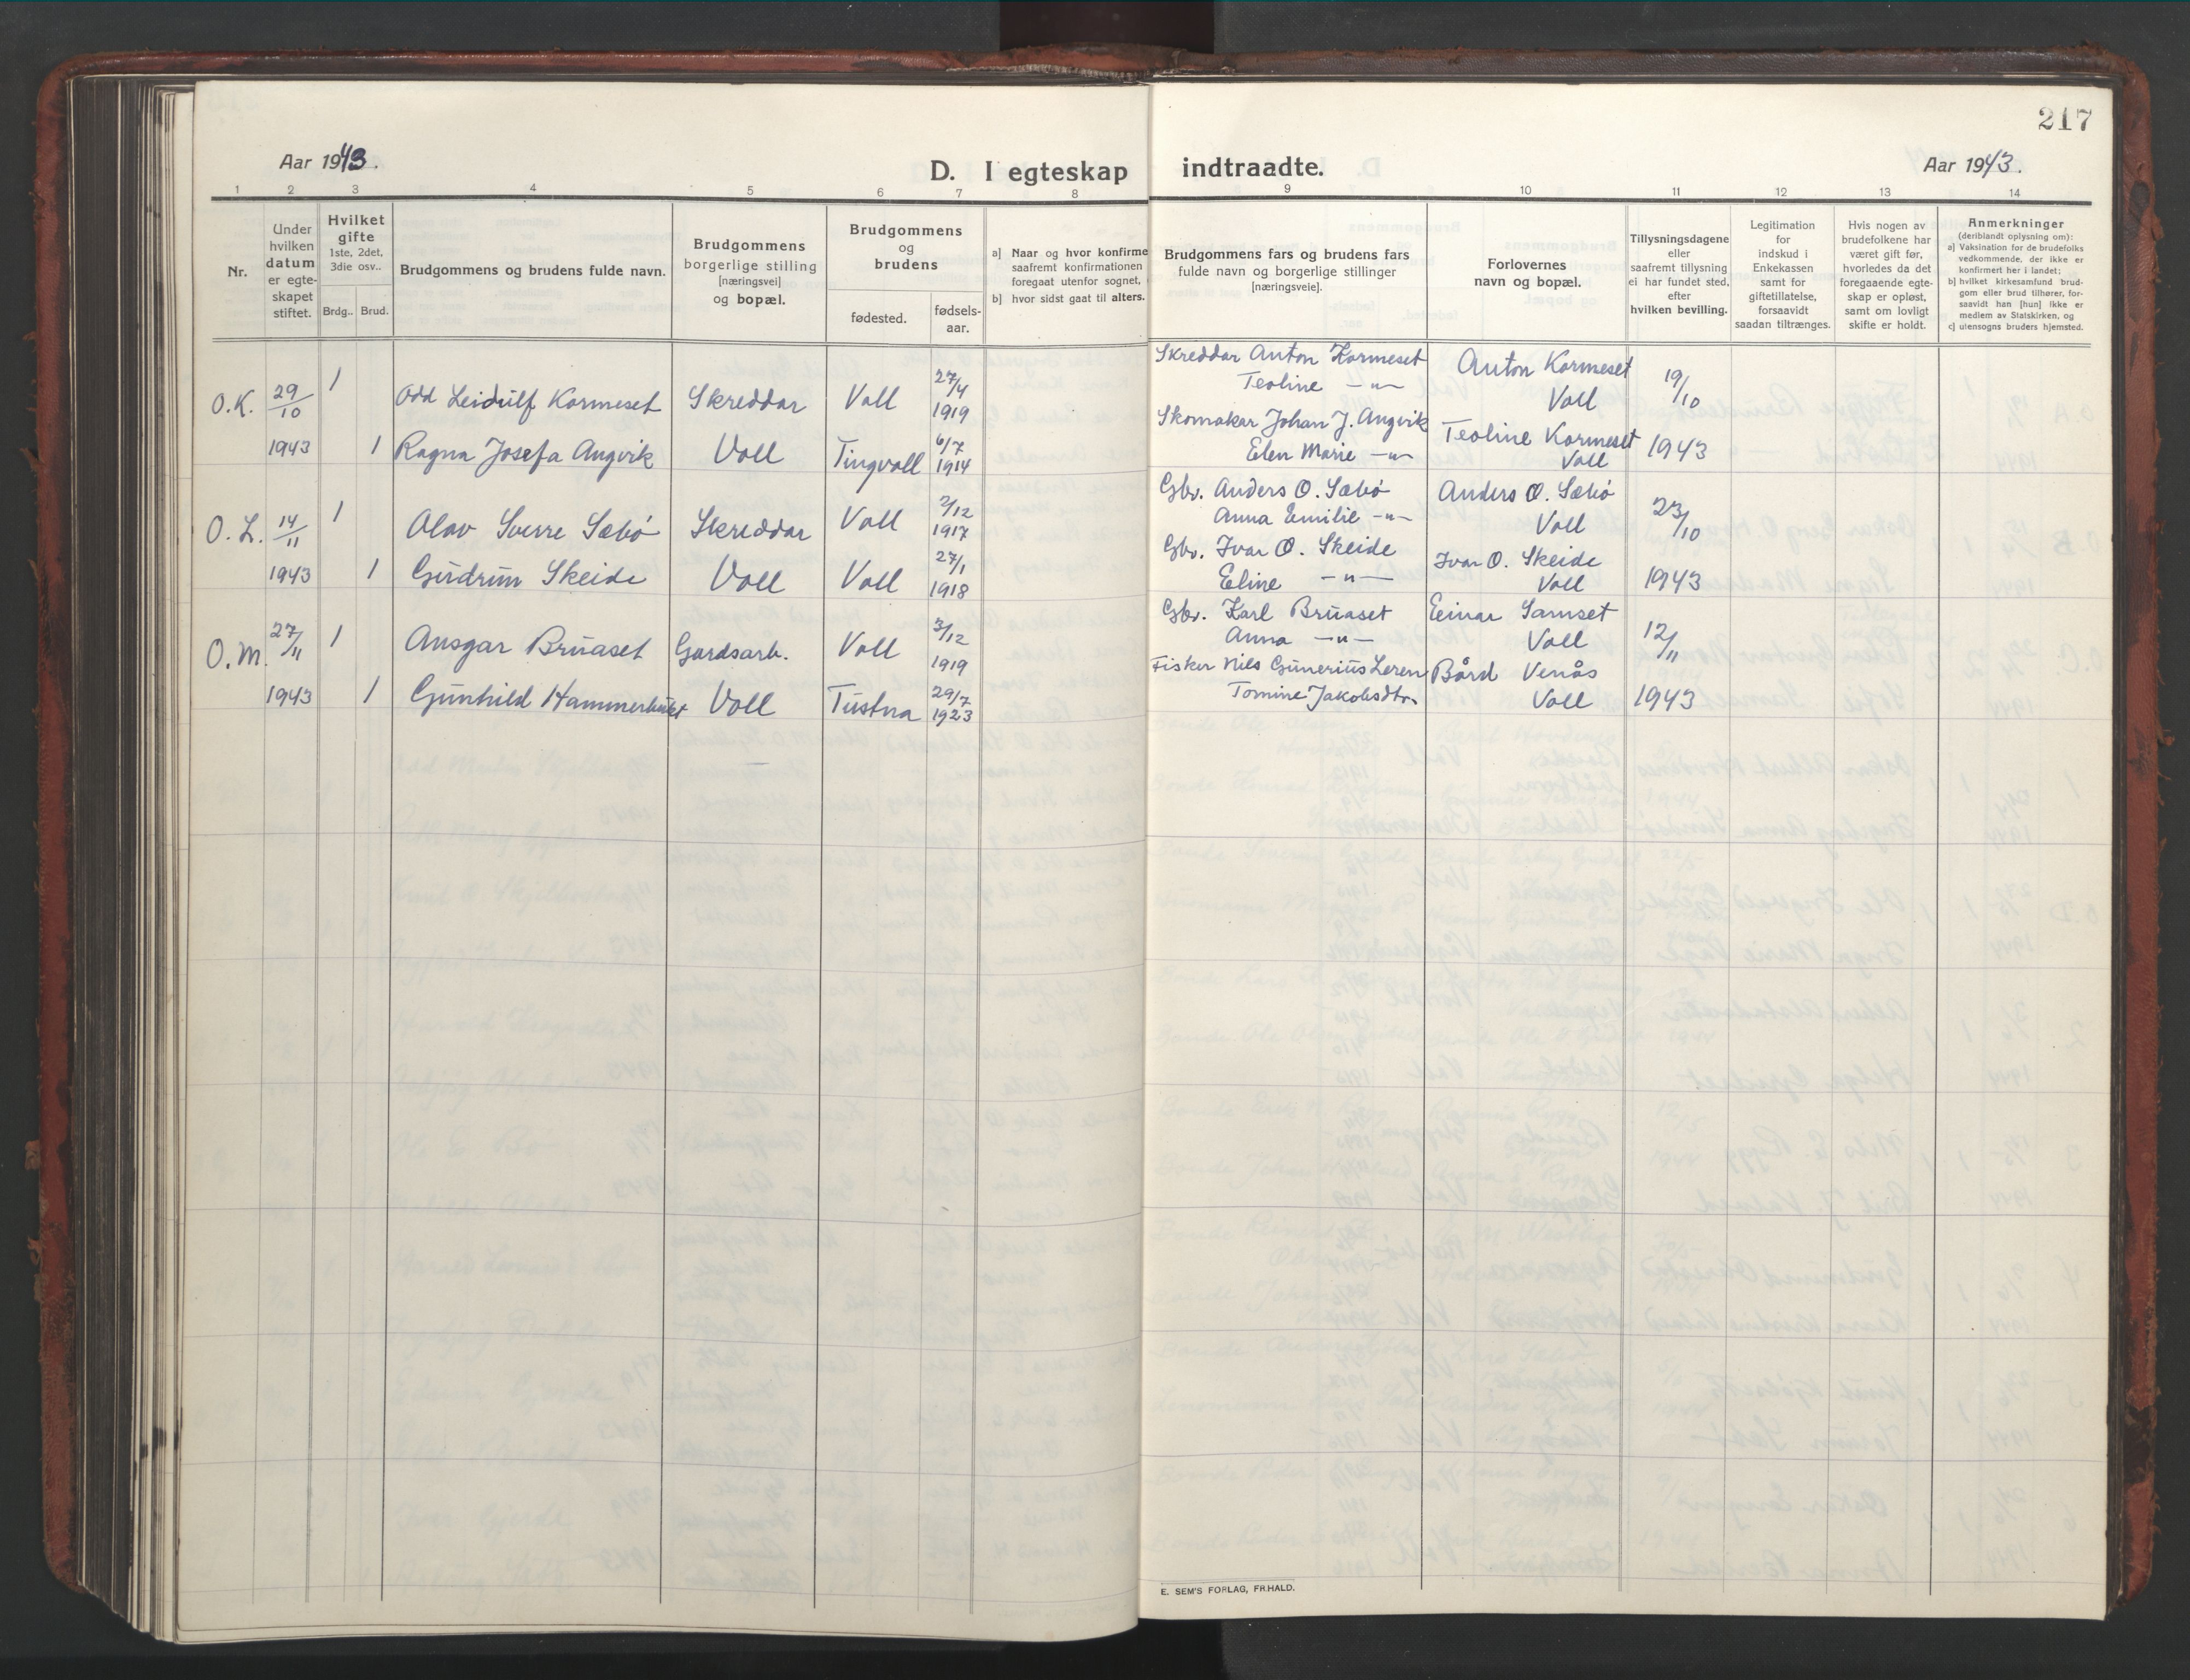 217
Aar 1943.
D. I egteskap indtraadte.
Aar 1943.
1 2 3 4 5 6 7 8 9 10 11 12 13 14
Nr.
Under
hvilken
datum
er egte-
skapet
stiftet.
Hvilket
gifte
1ste, 2det,
3die osv..
Brdg.. Brud.
Brudgommens og brudens fulde navn.
Brudgommens
borgerlige stilling
[næringsvei]
og bopæl.
Brudgommens
og
brudens
fødested.
fødsels-
aar.
a) Naar og hvor konfirme
saafremt konfirmationen
foregaat utenfor sognet,
b) hvor sidst gaat til alters.
Brudgommens fars og brudens fars
fulde navn og borgerlige stillinger
[næringsveie].
Forlovernes
navn og bopæl.
Tillysningsdagene
eller
saafremt tillysning
ei har fundet sted,
efter
hvilken bevilling.
Legitimation
for
indskud i
Enkekassen
samt for
giftetillatelse,
forsaavidt
saadan tiltrænges.
Hvis nogen av
brudefolkene har
været gift før,
hvorledes da det
foregaaende egte-
skap er opløst,
samt om lovligt
skifte er holdt.
Anmerkninger
(deriblandt oplysning om):
a) Vaksination for de brudefolks
vedkommende, der ikke er
konfirmert her i landet;
b) hvilket kirkesamfund brud-
gom eller brud tilhører, for-
saavidt han [hun] ikke er
medlem av Statskirken, og
c) utensogns bruders hjemsted.
O.K. 29/10 1 Odd Leidulf Kormeset Skreddar Voll 27/4 1919
Skreddar Anton Kormeset
Teoline -"-
Anton Kormeset
Voll
19/10
1943 1 Ragna Josefa Angvik Voll Tingvoll 6/7 1914
Skomakar Johan J. Angvik
Elen Marie -"-
Teoline Kormeset
Voll
1943
O.L. 14/11 1 Olav Sverre Sæbö Skreddar Voll 2/12 1917
Gbr. Anders O. Sæbö
Anna Emilie -"-
Anders O. Sæbö
Voll
23/10
1943 1 Gudrun Skeide Voll Voll 27/1 1918
Gbr. Ivar O. Skeide
Eline -"-
Ivar O. Skeide
Voll
1943
O.M. 27/11 1 Ansgar Bruaset Gardsarb. Voll 3/12 1919
Gbr. Karl Bruaset
Anna -"-
Einar Samset
Voll
12/11
1943 1 Gunhild Hammerbukt Voll Tustna 29/7 1923
Fisker Nils Gunerius Leren
Tomine Jakobsdtr.
Bård Venås
Voll
1943
E. SEM'S FORLAG, FR.HALD.